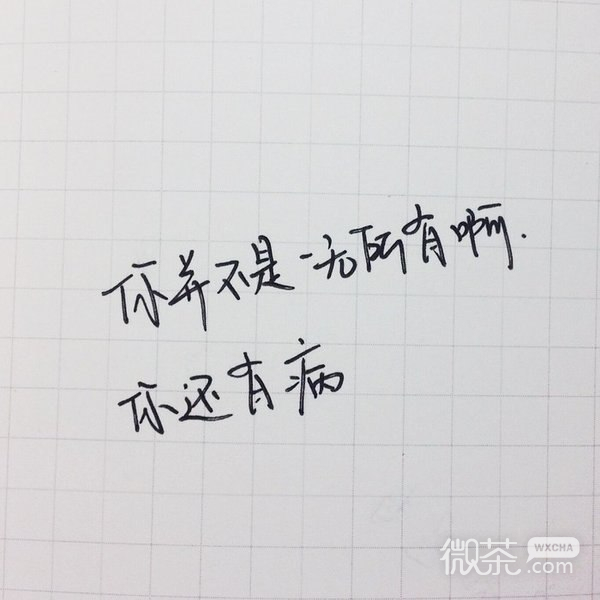 你并不是一无所有啊.
你还有病
微茶 WXCHA
.com